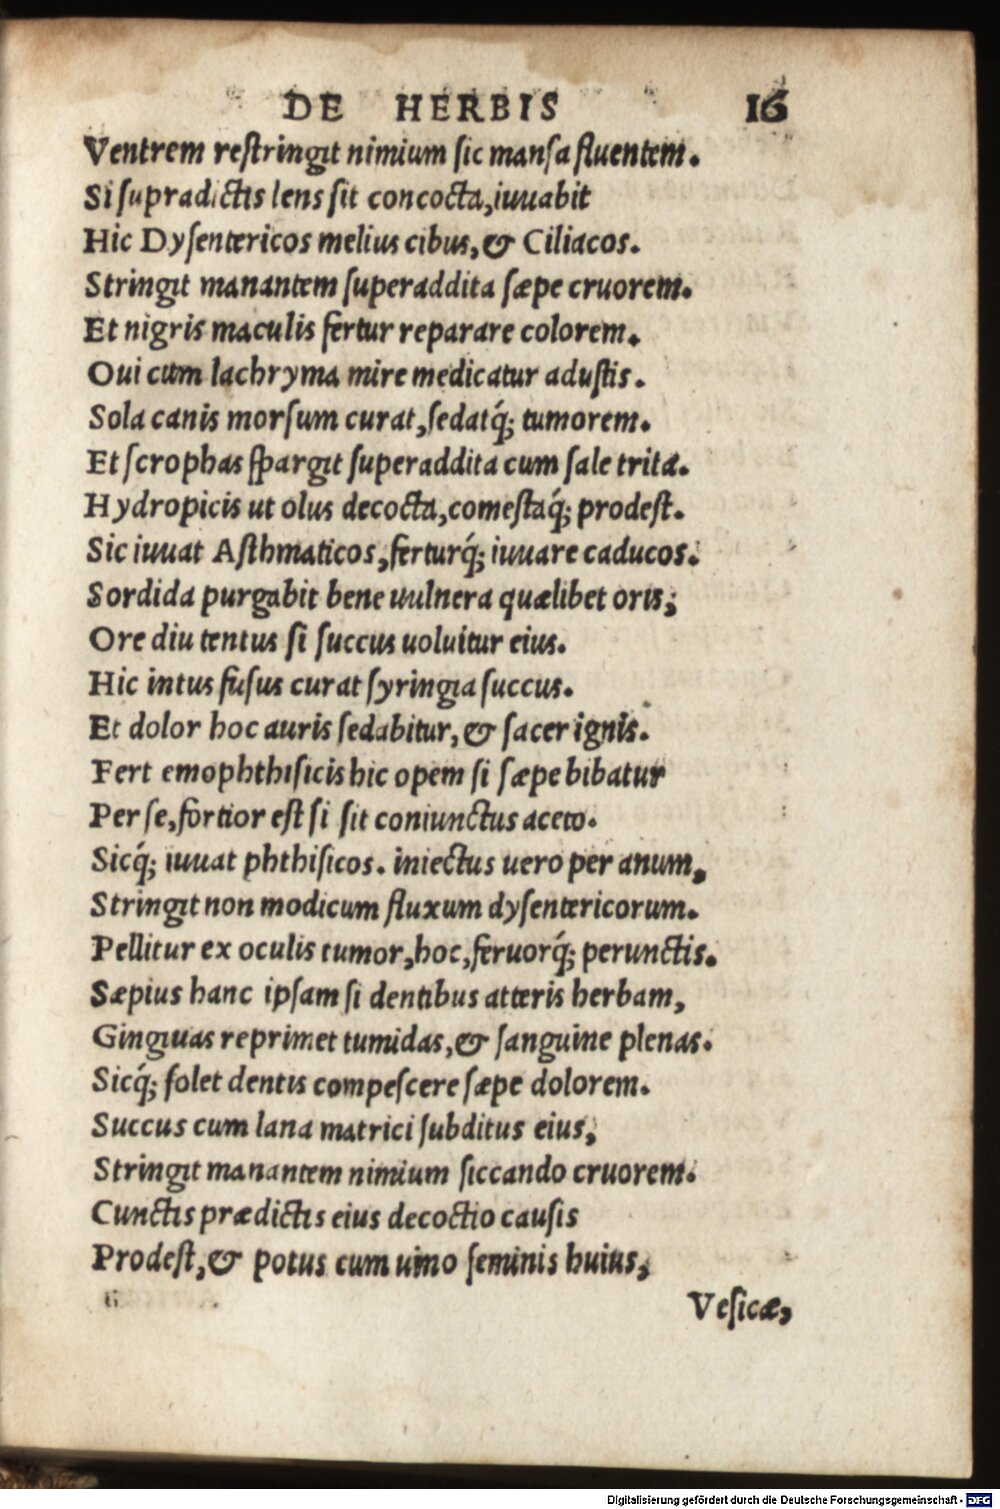 DE HERBIS 16
Ventrem reſtringit nimium ſic manſa fluentem.
Si ſupradictis lens ſit concocta, iuuabit
Hic Dyſentericos melius cibus, & Ciliacos.
Stringit manantem ſuperaddita ſæpe cruorem.
Et nigris maculis fertur reparare colorem.
Oui cum lachryma mire medicatur aduſtis.
Sola canis morſum curat, ſedatq́; tumorem.
Et ſcrophas ſpargit ſuperaddita cum ſale trita.
Hydropicis ut olus decocta, comeſtaq́; prodeſt.
Sic iuuat Aſthmaticos, ferturq́; iuuare caducos.
Sordida purgabit bene uulnera quælibet oris;
Ore diu tentus ſi ſuccus uoluitur eius.
Hic intus fuſus curat ſyringia ſuccus.
Et dolor hoc auris ſedabitur, & ſacer ignis.
Fert emophthiſicis hic opem ſi ſæpe bibatur
Per ſe, fortior eſt ſi ſit coniunctus aceto.
Sicq́; iuuat phthiſicos. iniectus uero per anum,
Stringit non modicum fluxum dyſentericorum.
Pellitur ex oculis tumor, hoc, feruorq́; perunctis.
Sæpius hanc ipſam ſi dentibus atteris herbam,
Gingiuas reprimet tumidas, & ſanguine plenas.
Sicq́; ſolet dentis compeſcere ſæpe dolorem.
Succus cum lana matrici ſubditus eius,
Stringit manantem nimium ſiccando cruorem.
Cunctis prædictis eius decoctio cauſis
Prodeſt, & potus cum uino ſeminis huius,
Veſicæ,
Digitalisierung gefördert durch die Deutsche Forschungsgemeinschaft - DFG